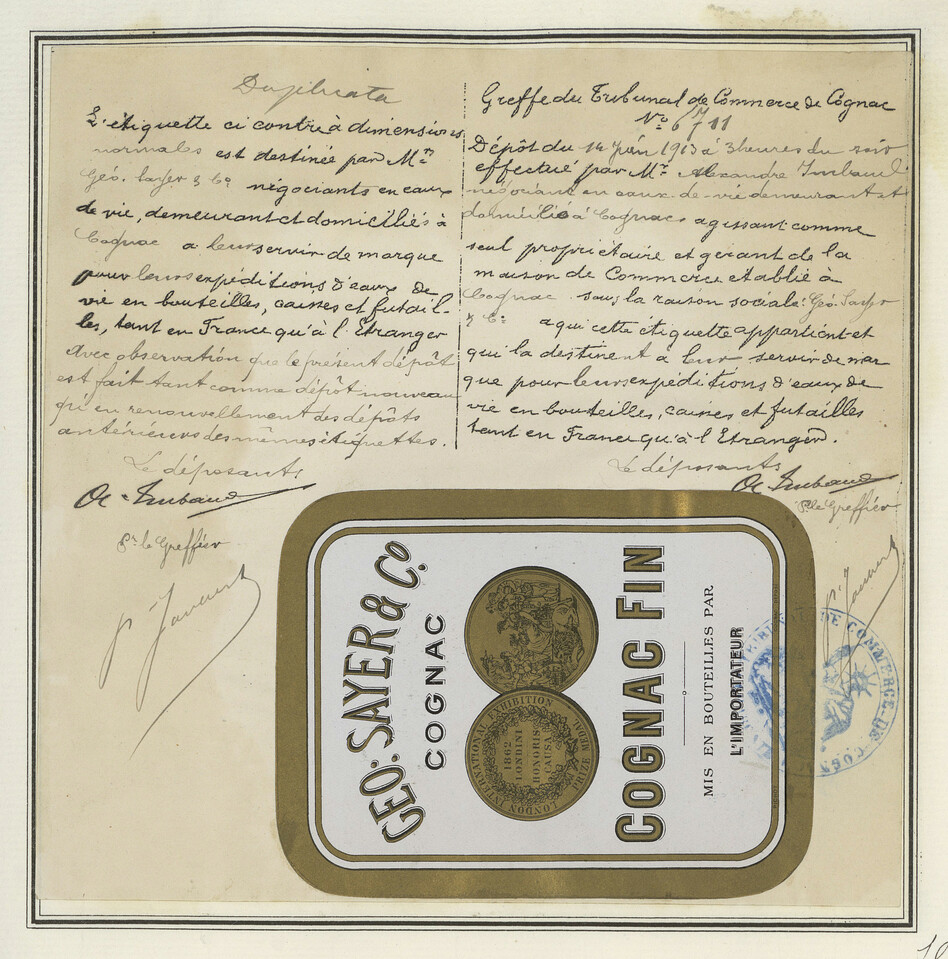 Duplicata
L'étiquette ci contre à dimensions
normales est destinée par Mrs
Géo. Sayer & Co négociants en eaux
de vie, demeurant et domiciliés à
Cognac à leur servir de marque
pour leurs expéditions d'eaux de
vie en bouteilles, caisses et futail-
les, tant en France qu'à l'Etranger
Avec observation que le présent dépôt
est fait tant comme dépôt nouveau
qu'en renouvellement des dépôts
antérieurs des mêmes étiquettes.
Le déposants
A. Imbaud
Pr le Greffier
Greffe du Tribunal de Commerce de Cognac
No 6711
Dépôt du 14 Juin 1913 à 3 heures du soir
effectué par Mr Alexandre Imbaud
négociant en eaux-de-vie demeurant et
domicilié à Cognac agissant comme
seul propriétaire et gérant de la
maison de Commerce établie à
Cognac sous la raison sociale: Géo. Sayer
& Co a qui cette étiquette appartient et
qui la destinent à leur servir de mar
que pour leurs expéditions d'eaux de
vie en bouteilles, caisses et futailles
tant en France qu'à l'Etranger.
Le déposants
A. Imbaud
Pr le Greffier
GEO: SAYER & Co
COGNAC
LONDON INTERNATIONAL EXHIBITION PRIZE MEDAL
1862
LONDINI
HONORIS
CAUSA
COGNAC FIN
MIS EN BOUTEILLES PAR
L'IMPORTATEUR
TRIBUNAL DE COMMERCE DE COGNAC